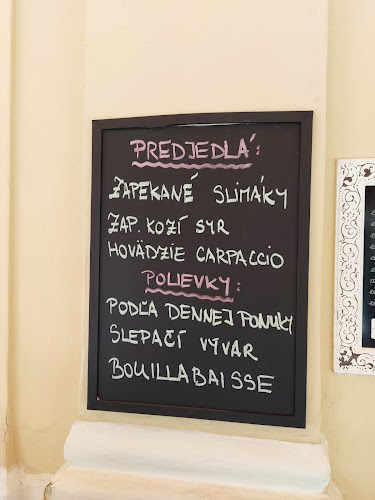 PREDJEDLÁ:
ZAPEKANÉ SLIMÁKY
ZAP. KOZÍ SYR
HOVÄDZIE CARPACCIO
POLIEVKY:
PODĽA DENNEJ PONUKY
SLEPAČÍ VÝVAR
BOUILLABAISSE